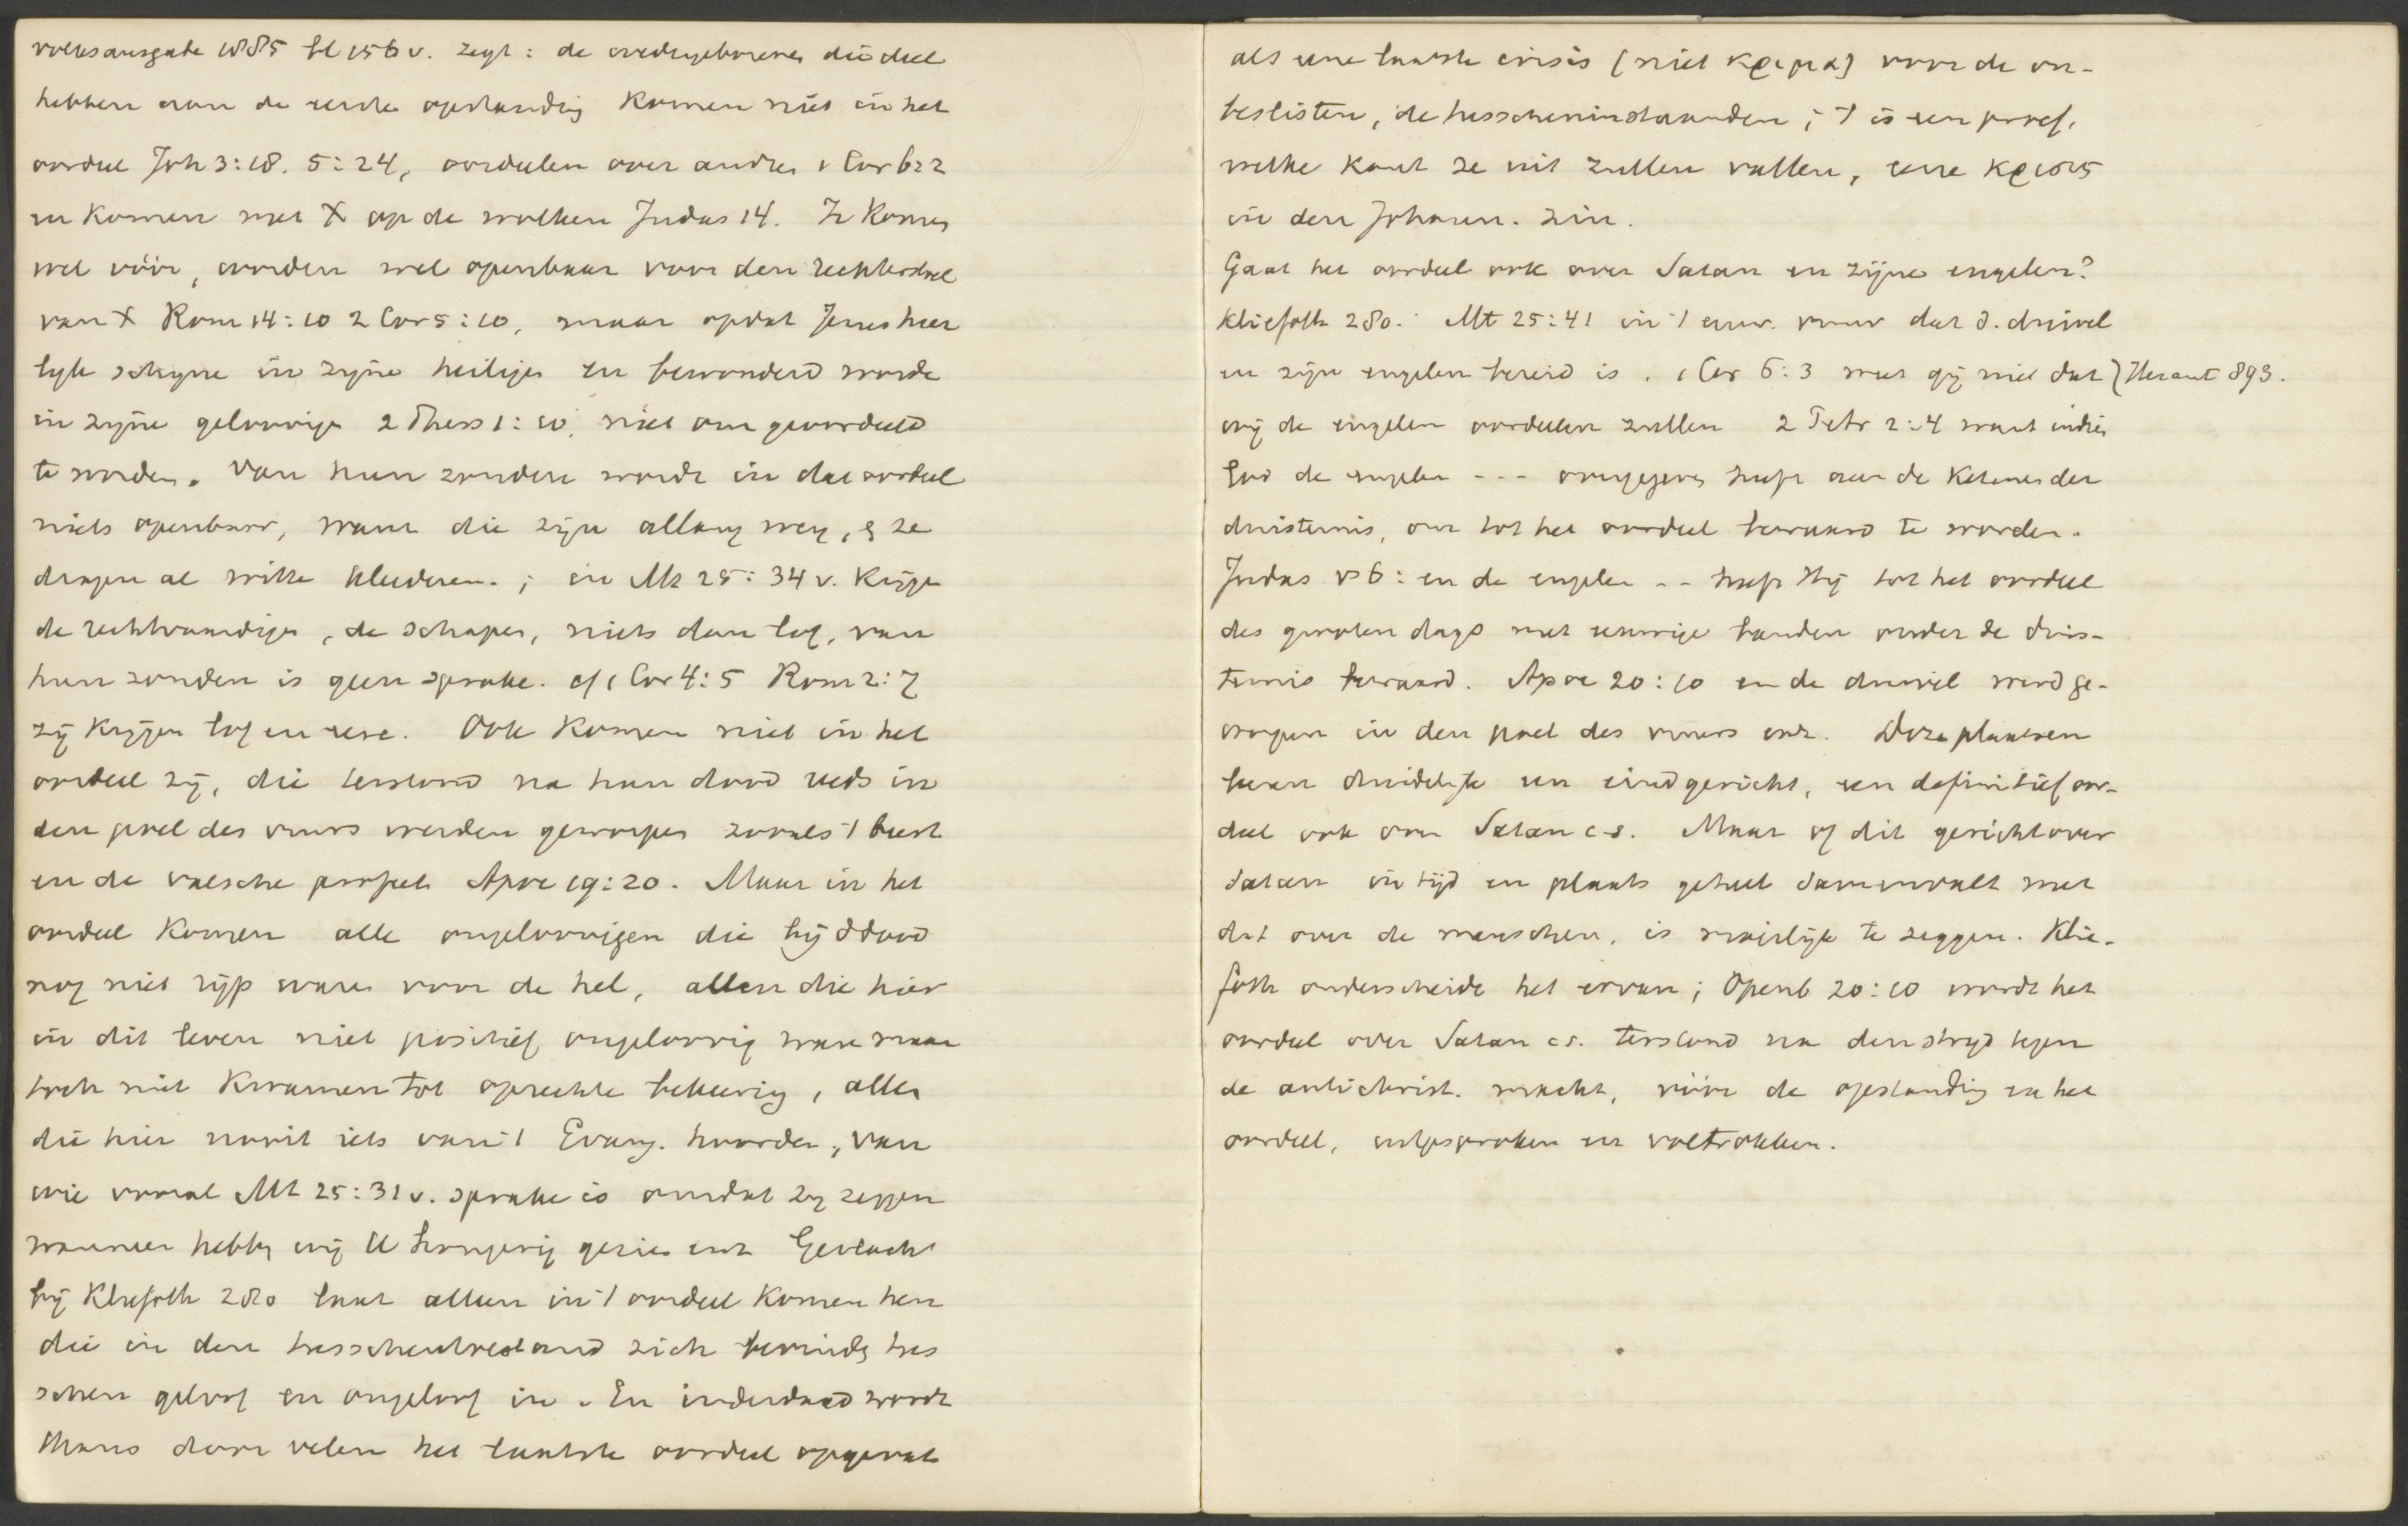 volksausgabe 1885 bl 156 v. zegt: de wedergeborenen die deel
hebben aan de eerste opstanding komen niet in het
oordeel Joh 3:18. 5:24, oordeelen over andren 1 Cor 6:2
en komen met X op de wolken Judas 14. Ze komen
wel vóór, worden wel openbaar voor den rechterstoel
van X Rom 14:10 2 Cor 5:10, maar opdat Jezus heer
lijk schijne in zijne heiligen en bewonderd worde
in zijne geloovigen 2 Thess 1:10, niet om geoordeeld
te worden. Van hun zonden wordt in dat oordeel
niets openbaar, want die zijn allang weg, & ze
dragen al witte kleederen.; in Mt 25:34 v. krijgen
de rechtvaardigen, de schapen, niets dan lof, van
hun zonden is geen sprake. cf 1 Cor 4:5 Rom 2:7
zij krijgen lof en eere. Ook komen niet in het
oordeel zij, die terstond na hun dood reeds in
den poel des vuurs werden geworpen zooals 't beest
en de valsche profeet Apoc 19:20. Maar in het
oordeel komen alle ongeloovigen die bij d dood
nog niet rijp waren voor de hel, allen die hier
in dit leven niet positief ongeloovig ware maar
toch niet kwamen tot oprechte bekeering, allen
die hier nooit iets van 't Evang. hoorden, van
wie vooral Mt 25:31 v. sprake is omdat zij zeggen
wanneer hebben wij U hongerig gezien enz Gerlach
bij Kliefoth 280 laat alleen in 't oordeel komen hen
die in den tusschentoestand zich bevinden tus
schen geloof en ongeloof in. En inderdaad wordt
thans door velen het laatste oordeel opgevat
als eene laatste crisis (niet κριμα) voor de on-
beslisten, de tusscheninstaanden; 't is een proef,
welke kant ze uit zullen vallen, eene κρισις
in den Johann. zin.
Gaat het oordeel ook over Satan en zijne engelen?
Kliefoth 280. Mt 25:41 in 't eeuw. vuur dat d. duivel
en zijn engelen bereid is. 1 Cor 6:3 weet gij niet dat } Heraut 893.
wij de engelen oordeelen zullen 2 Petr 2:4 want indien
God de engelen --- overgegeven heeft aan de ketenen der
duisternis, om tot het oordeel bewaard te worden.
Judas vs 6: en de engelen -- heeft Hij tot het oordeel
des grooten dags met eeuwige banden onder de duis-
ternis bewaard. Apoc 20:10 en de duivel werd ge-
worpen in den poel des vuurs enz. Deze plaatsen
leeren duidelijk een eindgericht, een definitief oor-
deel ook over Satan c.s. Maar of dit gericht over
Satan in tijd en plaats geheel samenvalt met
dat over de menschen, is moeilijk te zeggen. Klie-
foth onderscheidt het ervan; Openb 20:10 wordt het
oordeel over Satan cs. terstond na den strijd tegen
de antichrist. macht, vóór de opstanding en het
oordeel, uitgesproken en voltrokken.